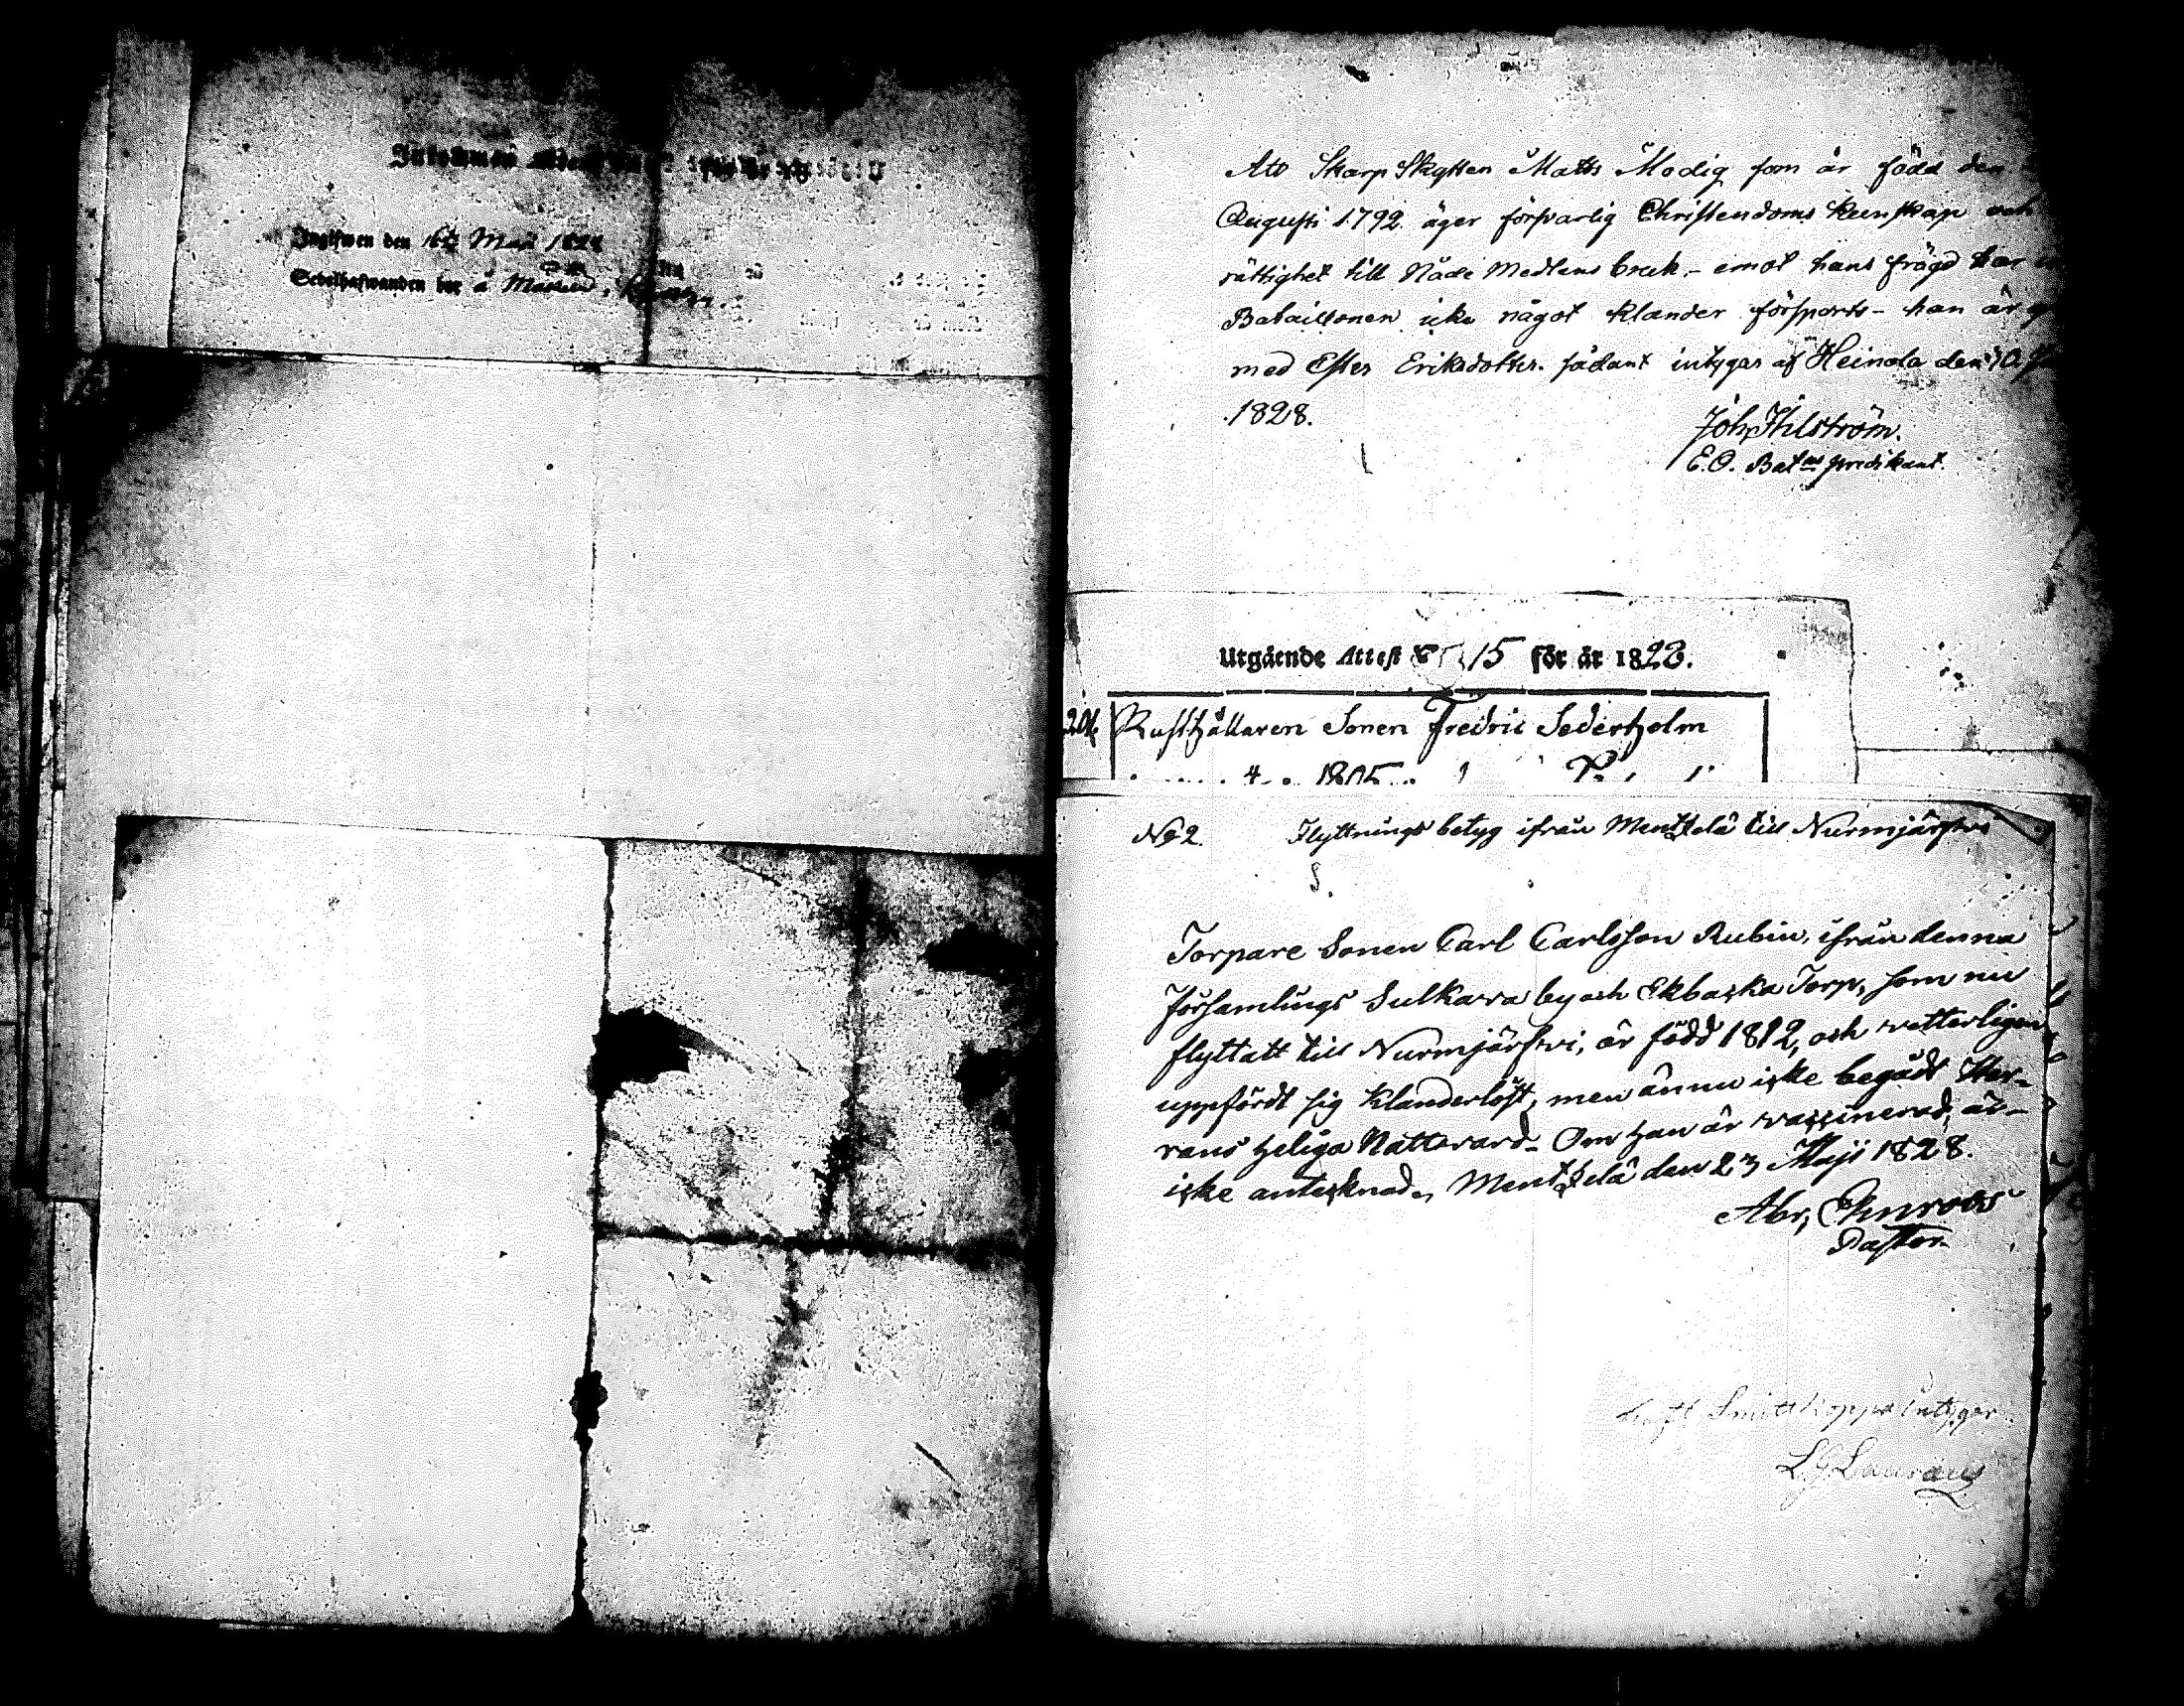 Inkommen Attest
Ingifwen den 16 Maij 1828
Sedelhafwanden bor å
Att Skarp Skytten Matts Modig som är född den
Augusti 1792. äger försvarlig Christendoms kunskap och
rättighet till Nåde Medlens bruk. - emot hans frägd har
Bataillonen icke något klander försports - han är
med Ester Eriksdotter. sådant intygar af Heinola den 10
1828.
Joh. Ihlström.
E. O. Bat:ns predikant.
Utgående Attest N:o 15 för år 1828.
Rusthållaren Sonen Fredric Sederholm
N:o 2. Flyttnings betyg ifrån Mentzelä till Nurmjärfwi
S.
Torpare Sonen Carl Carlsson Rubin, ifrån denna
Församlings Sulkava by och Ekbacka Torp, som nu
flyttatt till Nurmjärfwi, är född 1812, och vetterligen
uppfördt sig klanderlöst, men ännu icke begådt Her-
rans heliga Nattvard. Om han är vaccinerad, är
icke antecknad. Mentzelä den 23 Maji 1828.
Abr. Ehnroos
Pastor.
haft Smittkoppor intygar
L. G. Lauraeus